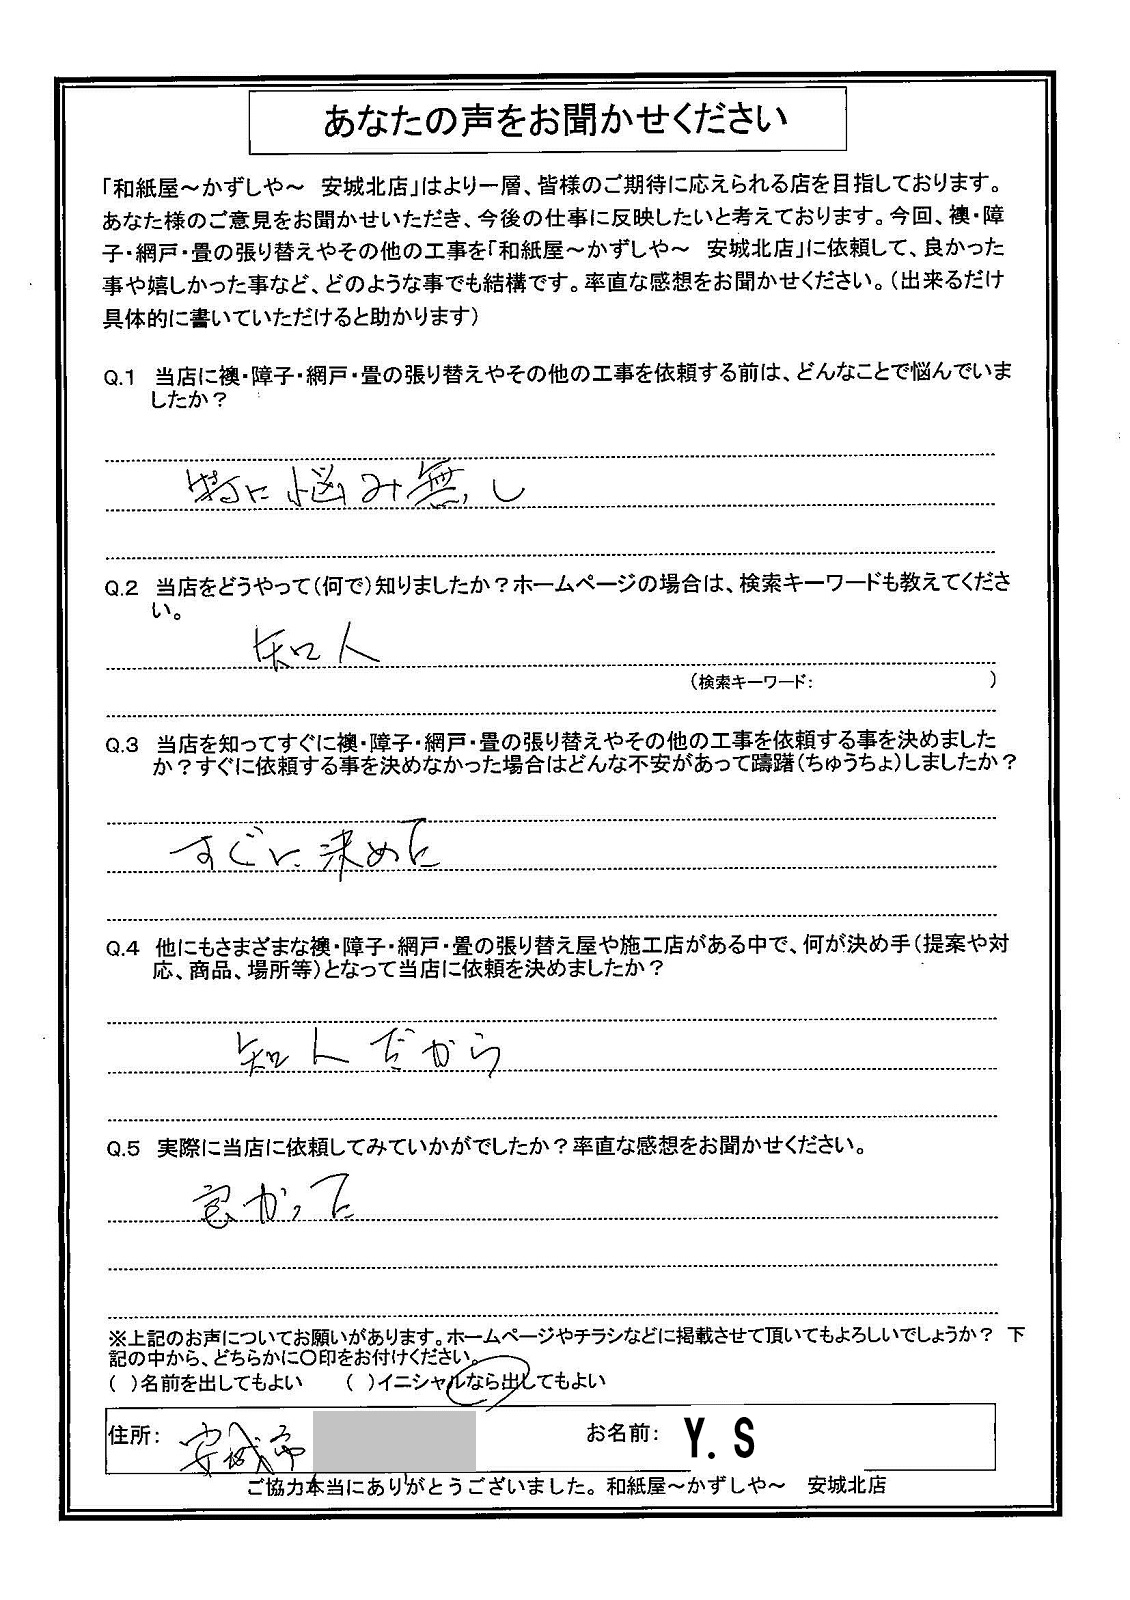 あなたの声をお聞かせください
「和紙屋～かずしや～　安城北店」はより一層、皆様のご期待に応えられる店を目指しております。
あなた様のご意見をお聞かせいただき、今後の仕事に反映したいと考えております。今回、襖・障
子・網戸・畳の張り替えやその他の工事を「和紙屋～かずしや～　安城北店」に依頼して、良かった
事や嬉しかった事など、どのような事でも結構です。率直な感想をお聞かせください。（出来るだけ
具体的に書いていただけると助かります）
Q.1　当店に襖・障子・網戸・畳の張り替えやその他の工事を依頼する前は、どんなことで悩んでいま
したか？
特に悩み無し
Q.2　当店をどうやって（何で）知りましたか？ホームページの場合は、検索キーワードも教えてくださ
い。
知人
（検索キーワード：　　　　　　　　　　）
Q.3　当店を知ってすぐに襖・障子・網戸・畳の張り替えやその他の工事を依頼する事を決めました
か？すぐに依頼する事を決めなかった場合はどんな不安があって躊躇（ちゅうちょ）しましたか？
すぐに決めた
Q.4　他にもさまざまな襖・障子・網戸・畳の張り替え屋や施工店がある中で、何が決め手（提案や対
応、商品、場所等）となって当店に依頼を決めましたか？
知人だから
Q.5　実際に当店に依頼してみていかがでしたか？率直な感想をお聞かせください。
良かった
※上記のお声についてお願いがあります。ホームページやチラシなどに掲載させて頂いてもよろしいでしょうか？　下
記の中から、どちらかに〇印をお付けください。
（　）名前を出してもよい　　（　）イニシャルなら出してもよい
住所：　安城市　　お名前：　Y.S
ご協力本当にありがとうございました。和紙屋～かずしや～　安城北店